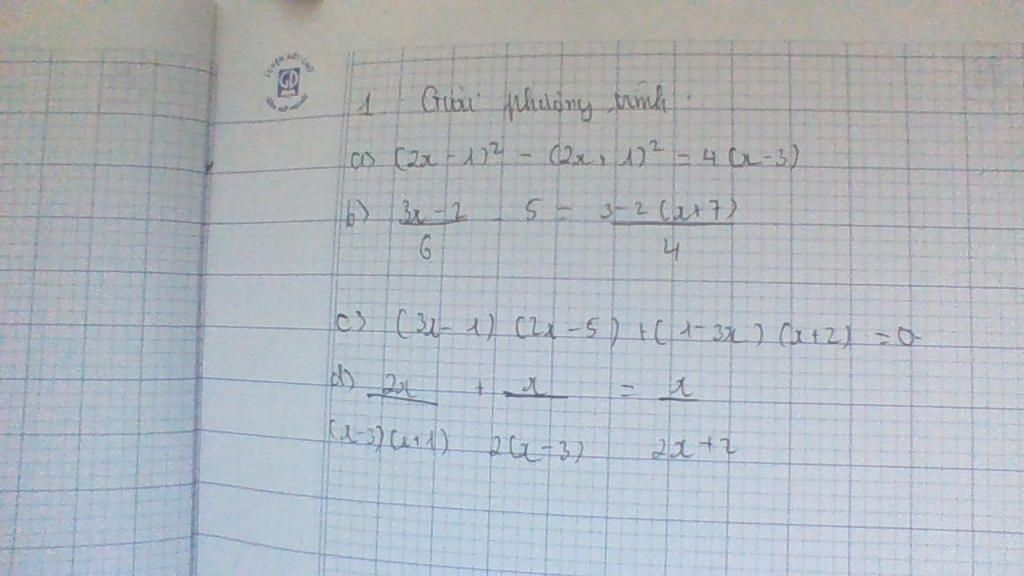 1. Giải phương trình.
a) (2x - 1)² - (2x + 1)² = 4(x-3)
b) \frac{3x-2}{6} - 5 = \frac{3-2(x+7)}{4}
c) (3x - 1)(2x - 5) + (1 - 3x)(x+2) = 0
d) \frac{2x}{(x-3)(x+1)} + \frac{x}{2(x-3)} = \frac{x}{2x+2}